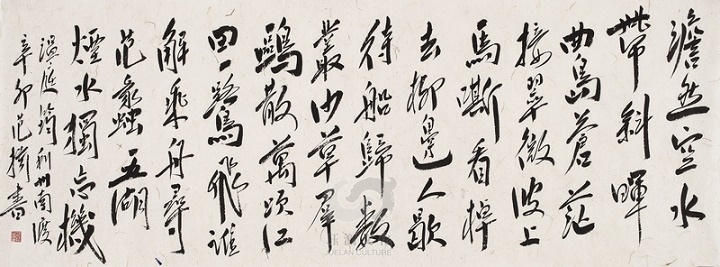 澹然空水
帶斜暉
曲島蒼茫
接翠微波上
馬嘶看棹
去柳邊人歇
待船歸數
叢沙草羣
鷗散萬頃江
田一鷺飛誰
解乘舟尋
范蠡五湖
煙水獨忘機
溫庭筠利州南渡
辛卯范揚書
JUELAN CULTURE